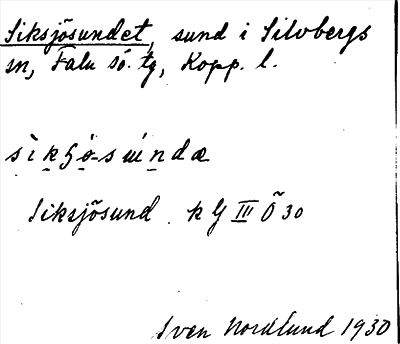 Siksjösundet, sund i Silvbergs
sn, Falu sö. tg, Kopp. l.
sìkʂö̀-súndæ
Siksjösund k G III Ö 30
Sven Nordlund 1930